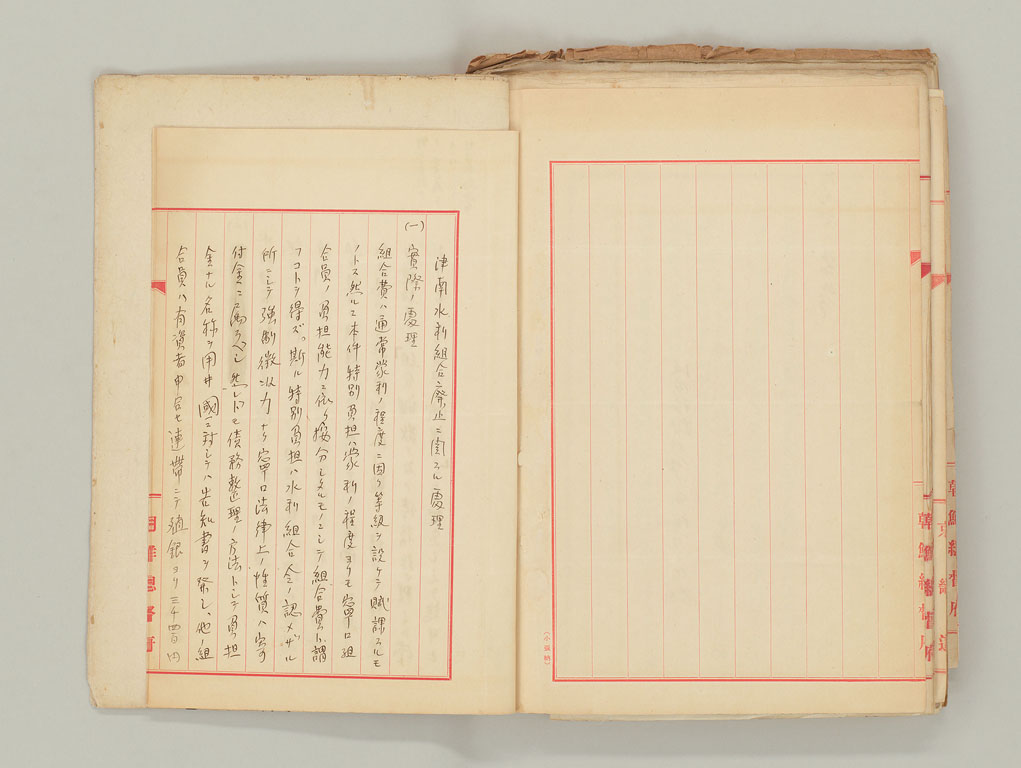 津南水利組合廃止ニ関スル処理
(一)
實際ノ處理
組合費ハ通常蒙利ノ程度ニ因リ等級ヲ設ケテ賦課スルモ
ノトス然ルニ本件特別負担ハ蒙利ノ程度ヨリモ寧ロ組
合員ノ負担能力ニ依リ按分シタルモノニシテ組合費ト謂
フコトヲ得ズ、斯ル特別負担ハ水利組合令ノ認メザル
所ニシテ強制徴収力ナク寧ロ法律上ノ性質ハ寄
付金ニ属スベシ然レドモ債務整理ノ方法トシテ負担
金ナル名称ヲ用ヰ國ニ対シテハ告知書ヲ発シ、他ノ組
合員ハ有資者申合セ連帯ニテ殖銀ヨリ三千四百円
朝鮮總督府
朝鮮總督府
朝鮮總督府